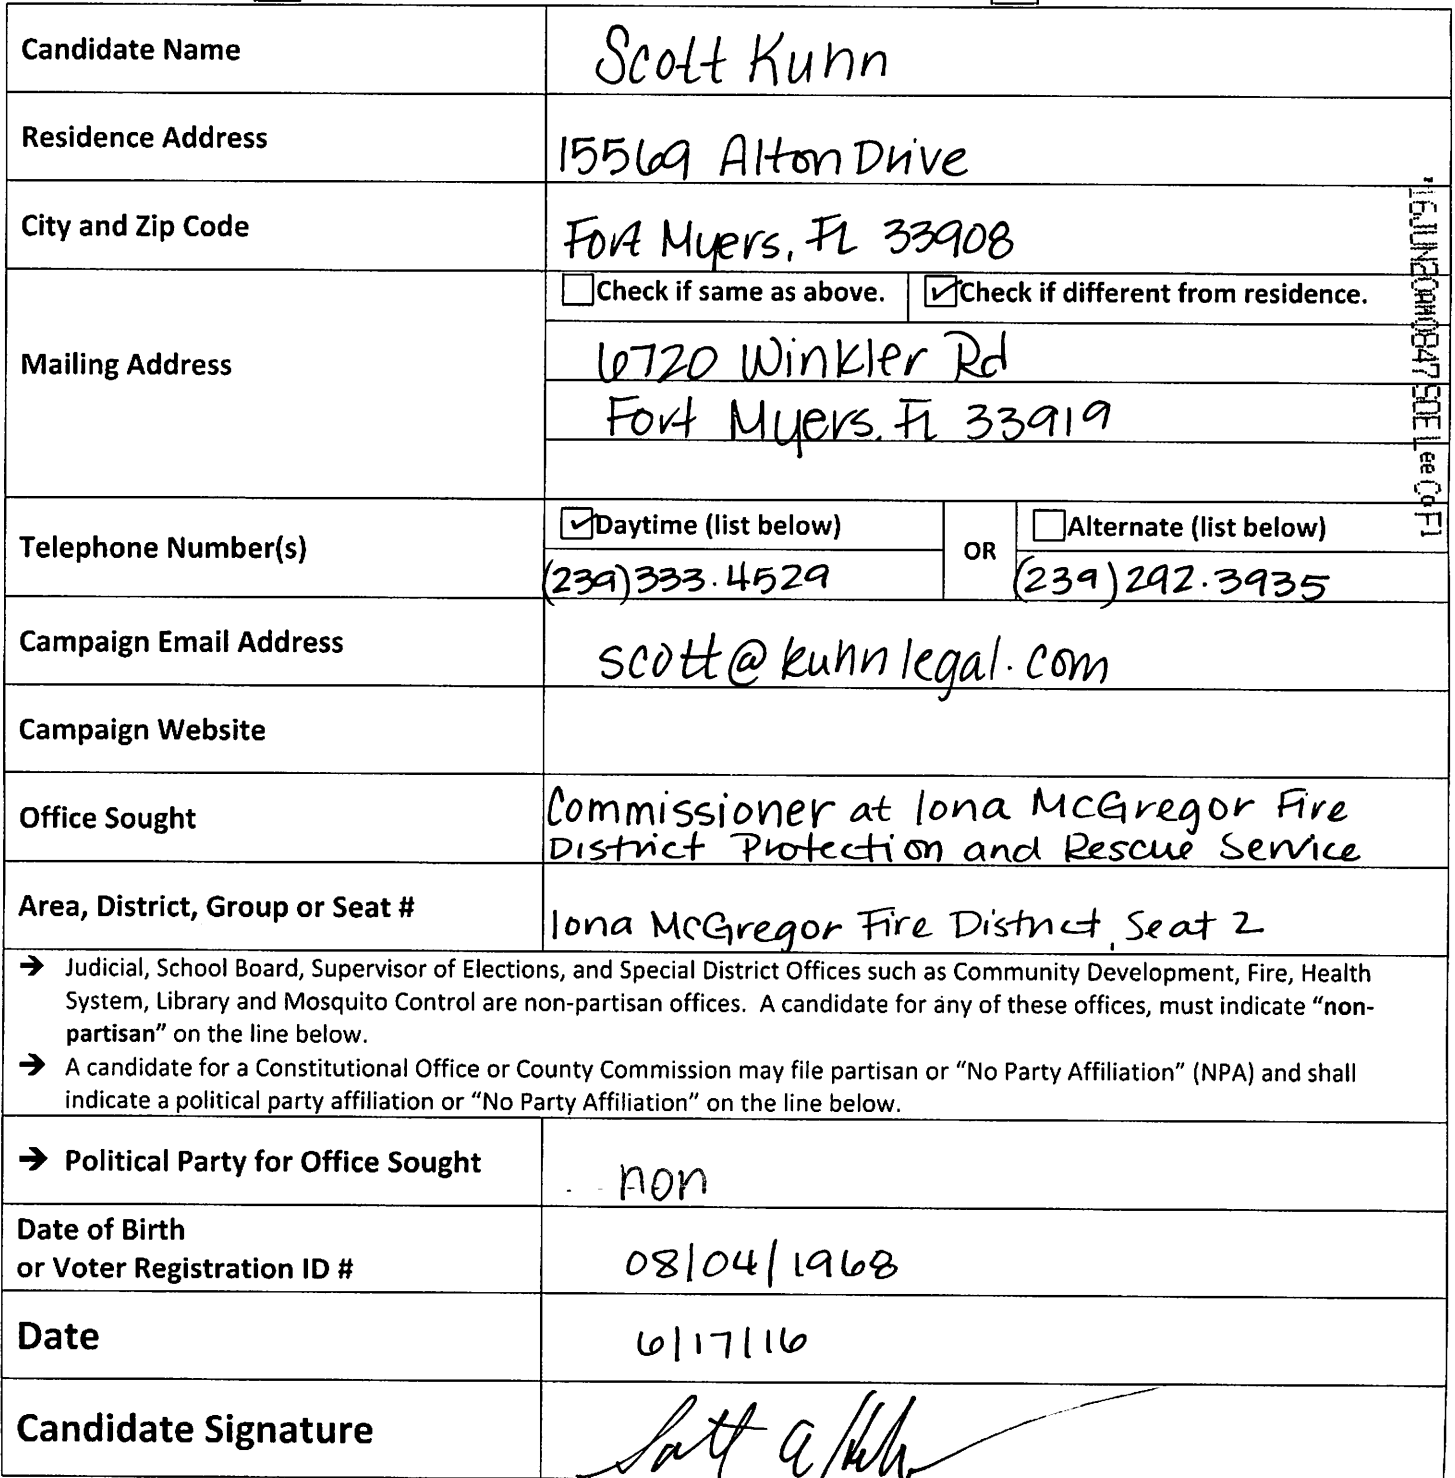 Candidate Name Scott Kuhn
Residence Address 15569 Alton Drive
City and Zip Code Fort Myers, FL 33908
☐ Check if same as above. ☑ Check if different from residence.
Mailing Address
6720 Winkler Rd
Fort Myers, FL 33919
☑ Daytime (list below) OR ☐ Alternate (list below)
Telephone Number(s)
(239)333.4529 (239)292.3935
Campaign Email Address scott@kuhnlegal.com
Campaign Website
Office Sought Commissioner at Iona McGregor Fire
District Protection and Rescue Service
Area, District, Group or Seat # Iona McGregor Fire District, Seat 2
→ Judicial, School Board, Supervisor of Elections, and Special District Offices such as Community Development, Fire, Health
System, Library and Mosquito Control are non-partisan offices. A candidate for any of these offices, must indicate "non-
partisan" on the line below.
→ A candidate for a Constitutional Office or County Commission may file partisan or "No Party Affiliation" (NPA) and shall
indicate a political party affiliation or "No Party Affiliation" on the line below.
→ Political Party for Office Sought non
Date of Birth
or Voter Registration ID # 08/04/1968
Date 6/17/16
Candidate Signature Scott A Kuhn
'16JUN20AM0847 SOE Lee Co Fl